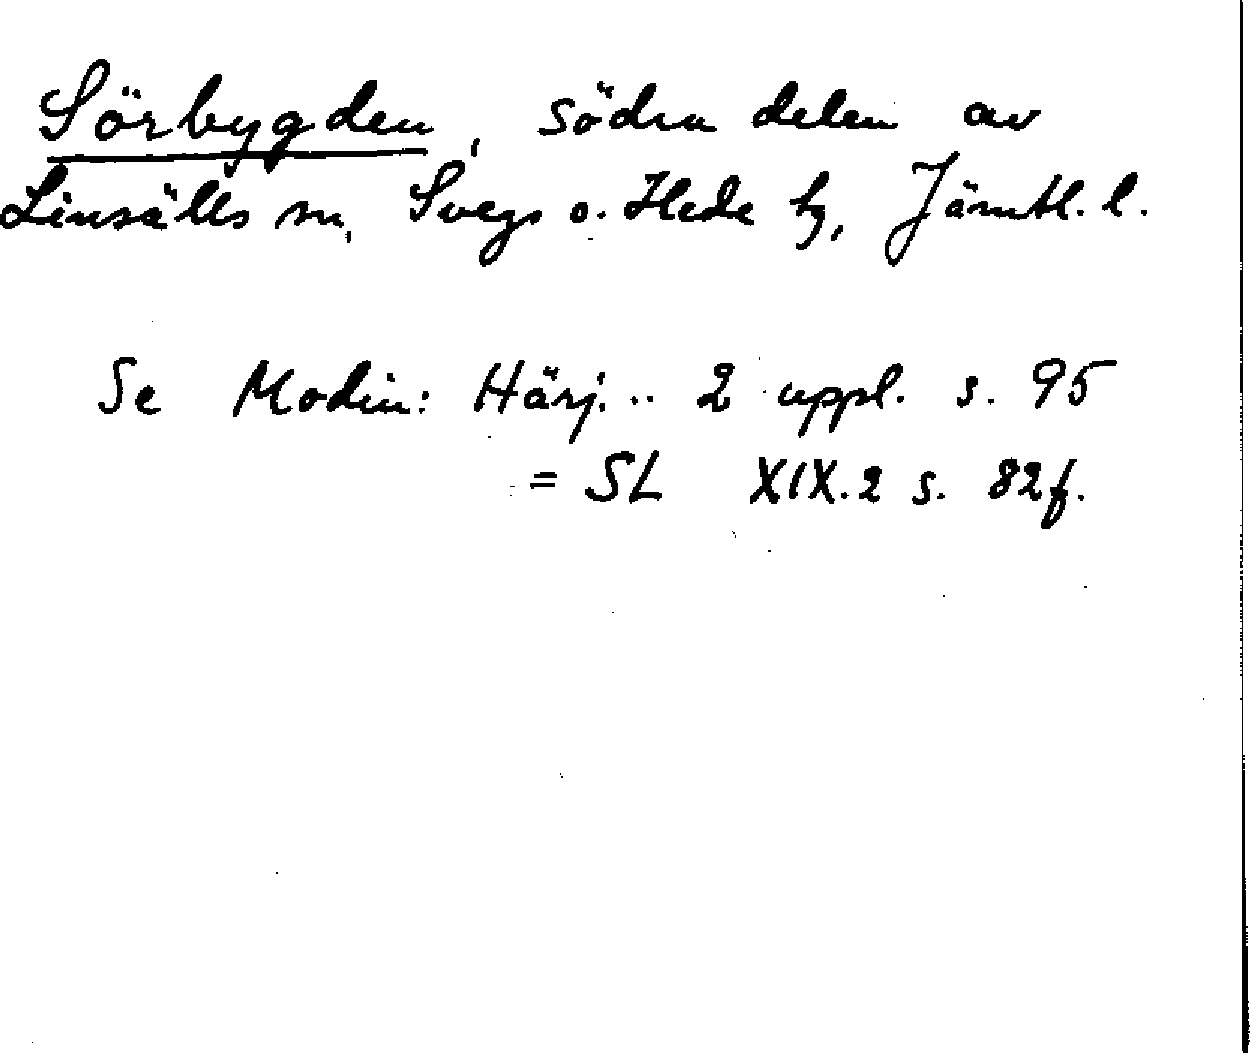 Sörbygden, södra delen av
Linsälls sn, Svegs o. Hede tg, Jämtl. l.
Se Modin: Härj... 2 uppl. s. 95
= SL XIX.2 s. 82f.